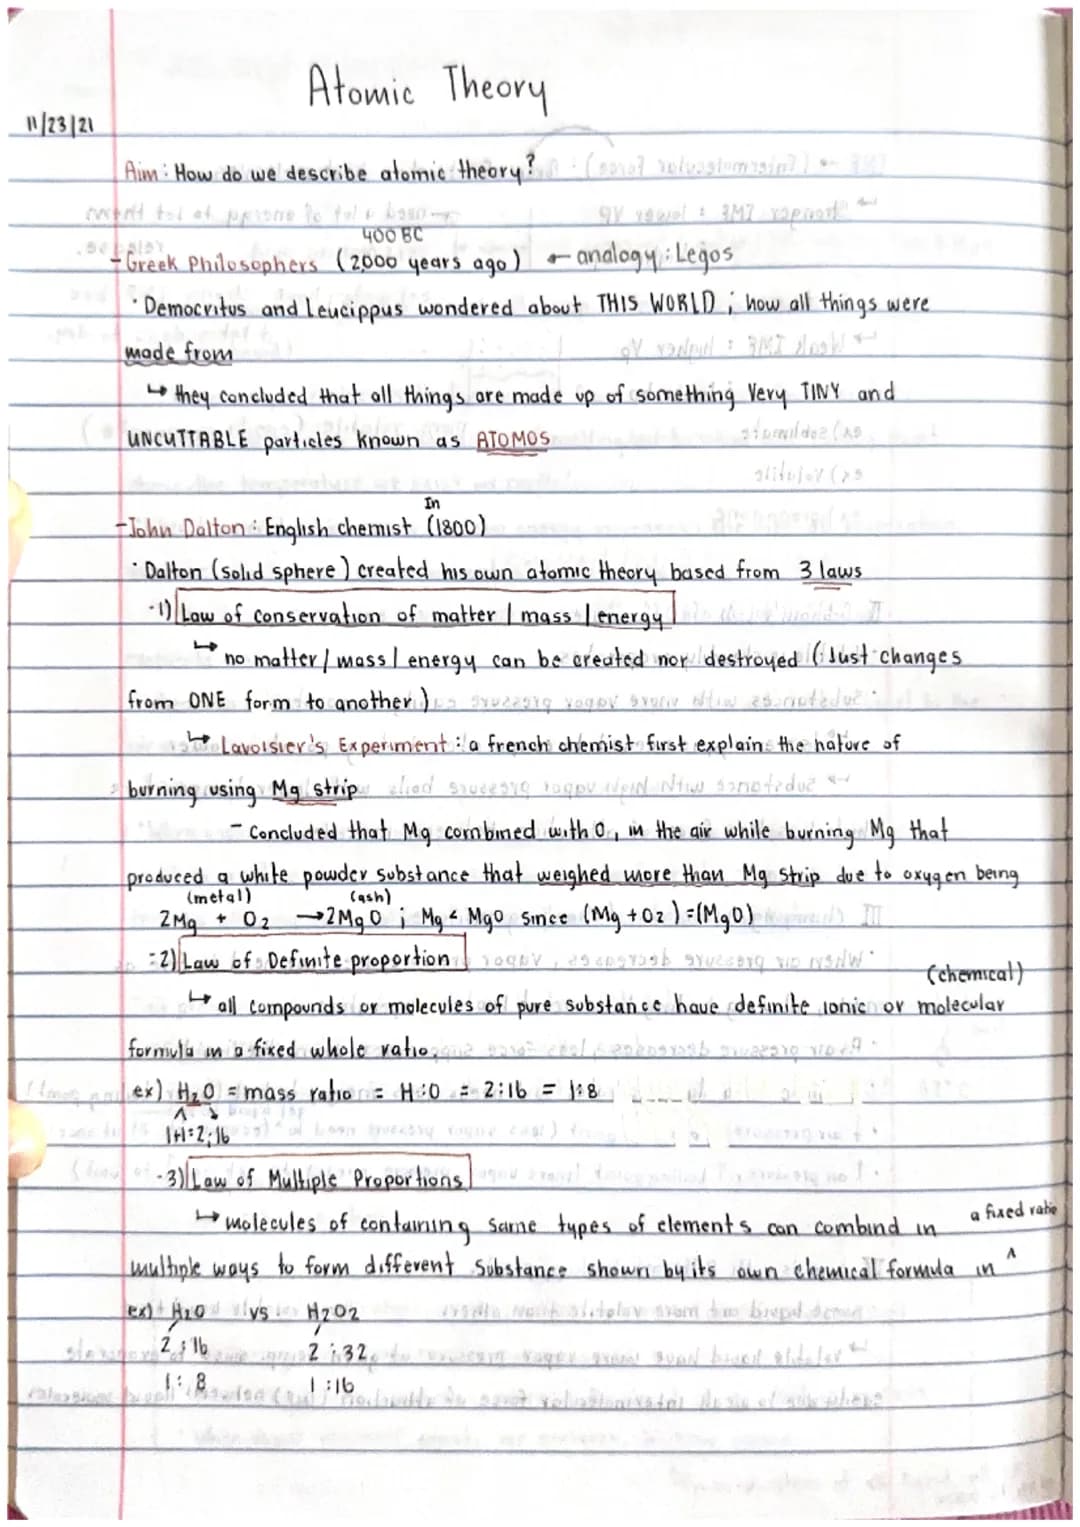 Atomic Theory
11/23/21
Aim: How do we describe atomic theory?
400 BC
-Greek Philosophers (2000 years ago) ← analogy: Legos
· Democritus and Leucippus wondered about THIS WORLD; how all things were
made from
↳ they concluded that all things are made up of something Very TINY and
UNCUTTABLE particles known as ATOMOS
In
-John Dalton: English chemist (1800)
· Dalton (solid sphere) created his own atomic theory based from 3 laws
-1) Law of conservation of matter / mass / energy
↳ no matter / mass / energy can be created nor destroyed (Just changes
from ONE form to another)
↳ Lavoisier's Experiment: a french chemist first explain the nature of
burning using Mg strip
- Concluded that Mg combined with O, in the air while burning Mg that
produced a white powder substance that weighed more than Mg strip due to oxygen being
(metal) (ash)
2Mg + O2 → 2MgO; Mg < MgO since (Mg + O2) = (MgO)
-2) Law of Definite proportion
(chemical)
↳ all compounds or molecules of pure substance have definite ionic or molecular
formula in a fixed whole ratio.
ex) H2O = mass ratio = H:O = 2:16 = 1:8
1+1=2;16
-3) Law of Multiple Proportions
↳ molecules of containing same types of elements can combind in a fixed ratio
multiple ways to form different Substance shown by its own chemical formula in ^
ex) H2O vs H2O2
2:16 2:32
1:8 1:16